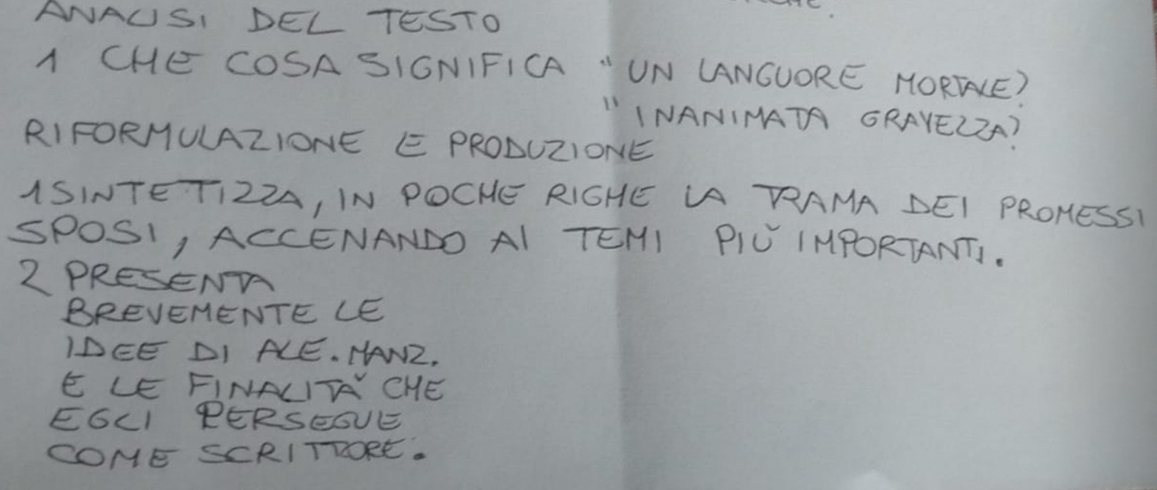 ANALISI DEL TESTO
1 CHE COSA SIGNIFICA "UN LANGUORE MORTALE?
"INANIMATA GRAVEZZA?
RIFORMULAZIONE E PRODUZIONE
1 SINTETIZZA, IN POCHE RIGHE LA TRAMA DEI PROMESSI
SPOSI, ACCENANDO AI TEMI PIÙ IMPORTANTI.
2 PRESENTA
BREVEMENTE LE
IDEE DI ALE. MANZ.
E LE FINALITÀ CHE
EGLI PERSEGUE
COME SCRITTORE.